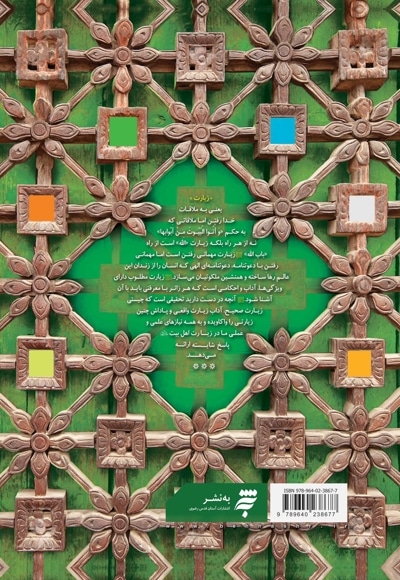 «زیارت»
یعنی به ملاقات
خدا رفتن اما ملاقاتی که
به حکم «و أتوا البیوت من أبوابها»
نه از هر راه بلکه زیارت «الله» است از راه
«باب الله» زیارت مهمانی رفتن است اما مهمانی
رفتن با دعوتنامه. دعوتنامه‌ای الهی که انسان را از زندان این
عالم رها ساخته و همنشین ملکوتیان می‌سازد. زیارت مطلوب دارای
ویژگی‌ها، آداب و احکامی است که هر زائر با معرفتی باید با آن
آشنا شود. آنچه در دست دارید تحقیقی است که چیستی
زیارت صحیح، آداب زیارت واقعی و پاداش چنین
زیارتی را واکاویده و به همه نیازهای علمی و
عملی ما در زیارت اهل بیت
پاسخ شایسته ارائه
می‌دهد.
ISBN: 978-964-02-3867-7
9 789640 238677
به‌نشر
انتشارات آستان قدس رضوی